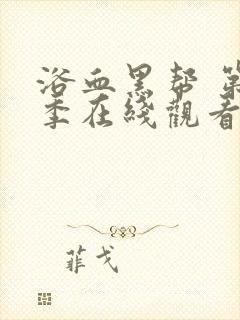 浴血黑帮 第
季在线觀看
菲戈